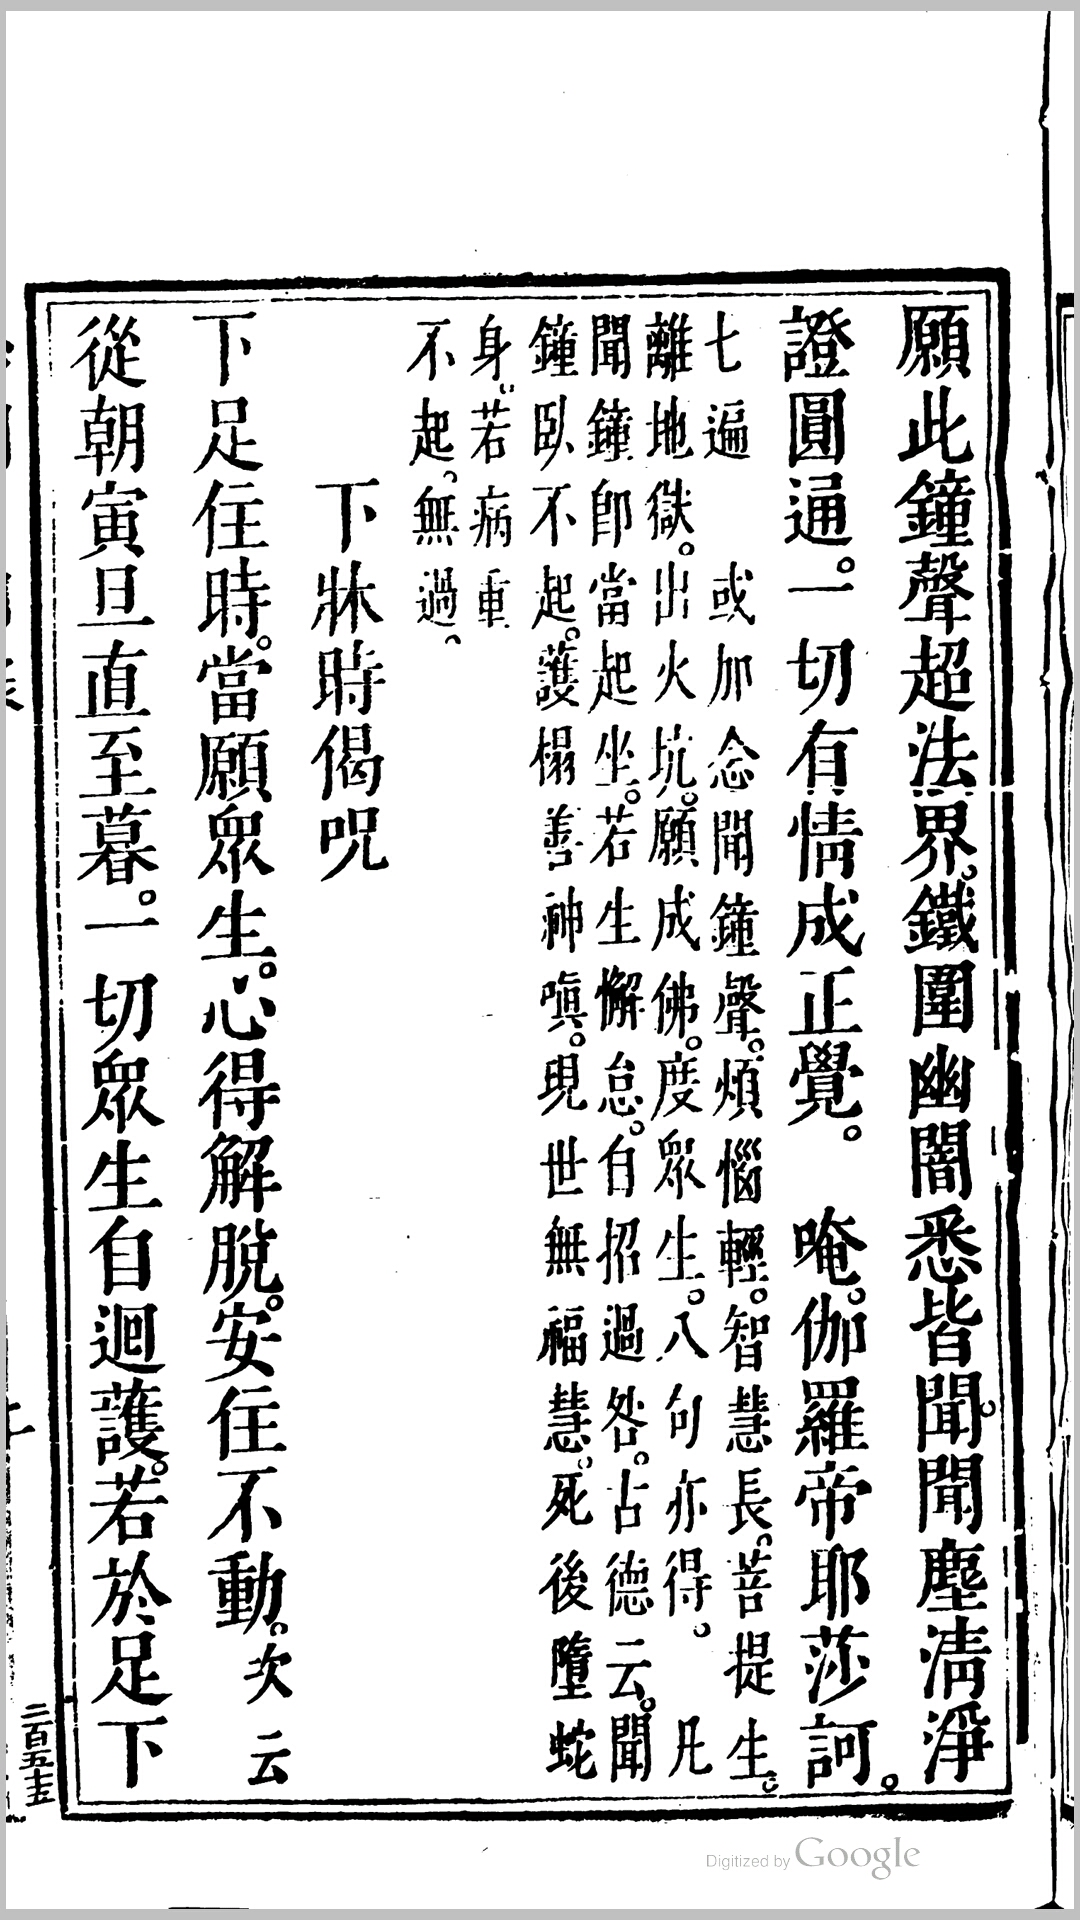 願此鐘聲超法界。鐵圍幽闇悉皆聞。聞塵清淨
證圓通。一切有情成正覺。　唵。伽羅帝耶莎訶。
七遍　或加念聞鐘聲。煩惱輕。智慧長。菩提生。
離地獄。出火坑。願成佛。度眾生。八句亦得。　凡
聞鐘卽當起坐。若生懈怠。自招過咎。古德云。聞
鐘臥不起。護榻善神嗔。現世無福慧。死後墮蛇
身。若病重
不起。無過。
下牀時偈呪
下足住時。當願眾生。心得解脫。安住不動。次云
從朝寅旦直至暮。一切眾生自迴護。若於足下
二百五十五
Digitized by Google